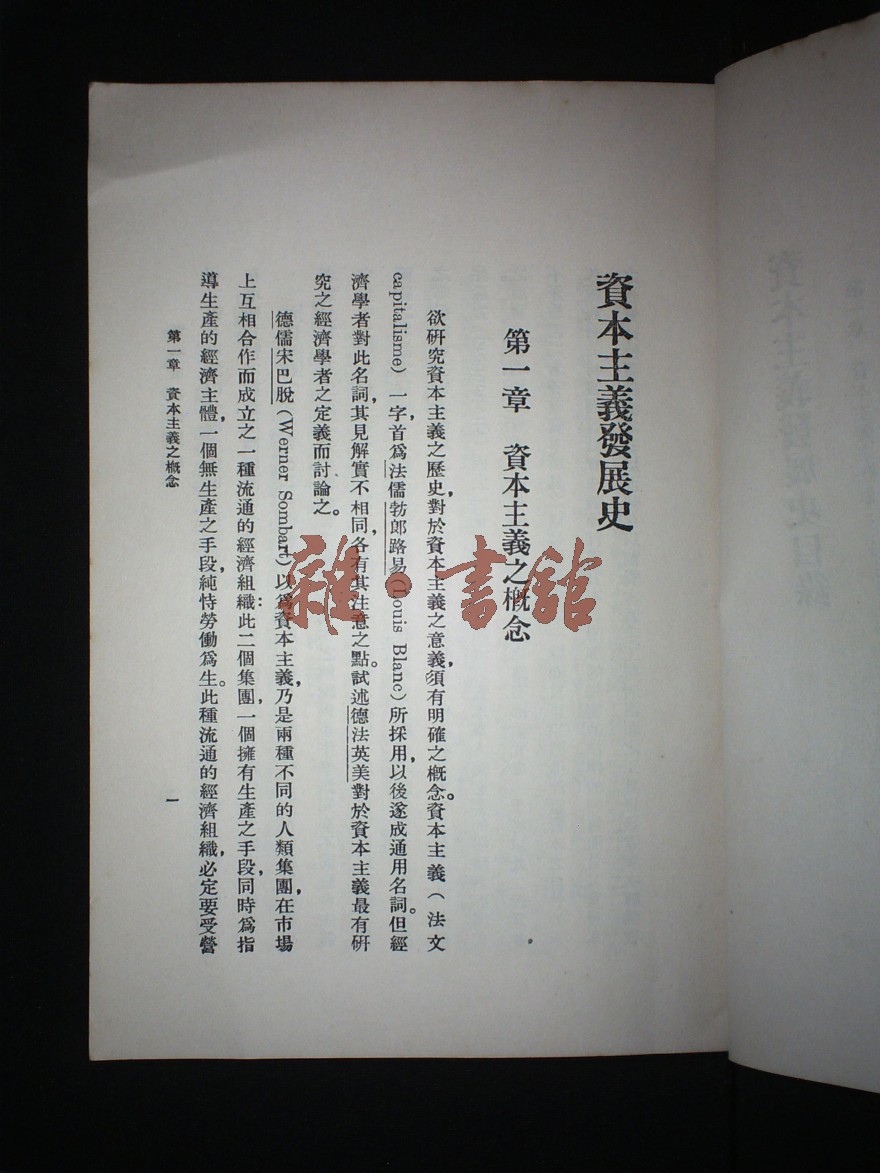 資本主義發展史
第一章 資本主義之概念
欲研究資本主義之歷史，對於資本主義之意義，須有明確之概念。資本主義（法文
capitalisme）一字，首爲法儒勃郎路易（Louis Blanc）所採用，以後遂成通用名詞。但經
濟學者對此名詞，其見解實不相同，各有其注意之點。試述德法英美對於資本主義最有研
究之經濟學者之定義而討論之。
德儒宋巴脫（Werner Sombart）以爲資本主義，乃是兩種不同的人類集團，在市場
上互相合作而成立之一種流通的經濟組織：此二個集團，一個擁有生產之手段，同時爲指
導生產的經濟主體，一個無生產之手段，純恃勞働爲生。此種流通的經濟組織，必定要受營
第一章 資本主義之概念
一
雜·書館